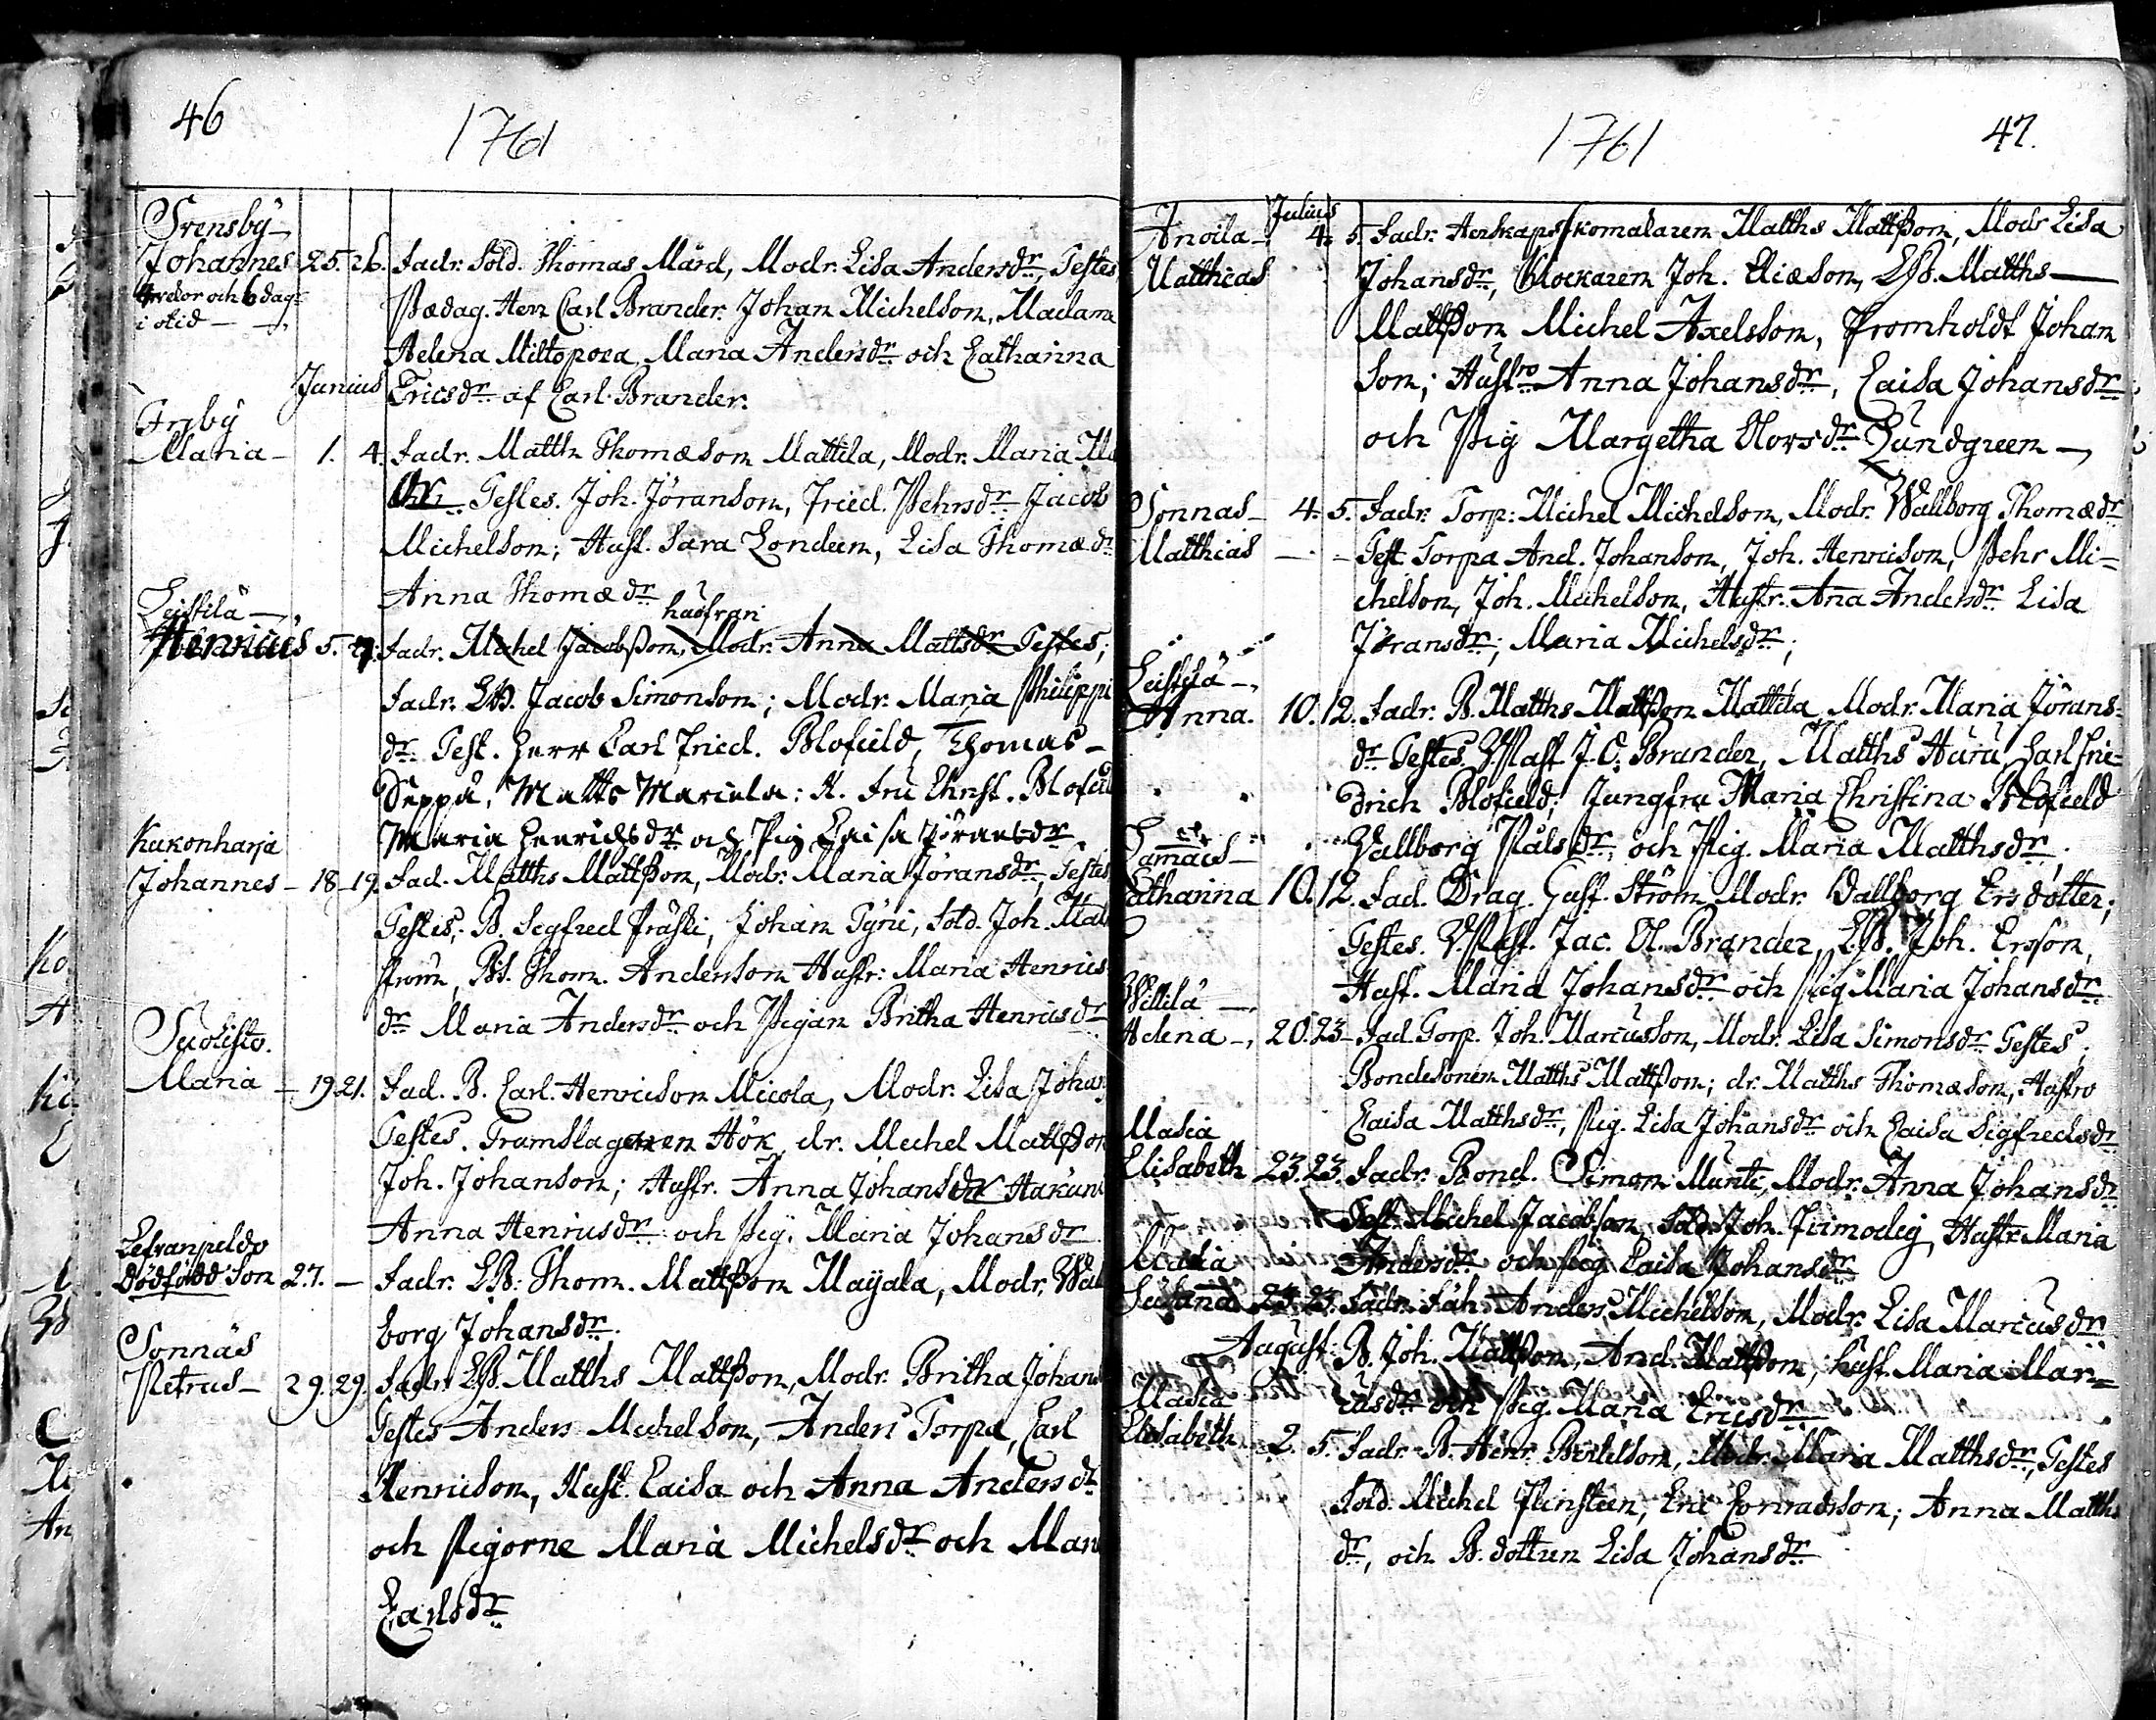 46
1761
Svensby
Johannes 25. 26. Fadr. Sold. Thomas Mård, Modr. Lisa Andersdr, Testes
veckor och 6 dag
i otid
Pædag. Herr Carl Brander. Johan Michelsom, Madame
Helena Miltopoea, Maria Andersdr och Catharina
Junius
Ericsdr af Carl Brander.
Maria 1. 4. Fadr. Matth Thomæsom Mattila, Modr. Maria
dr Testes. Joh. Jöransom, Fried. Pehrsdr Jacob
Michelsom; Hust. Sara Londeen, Lisa Thomædr
Anna Thomædr
Leistilä husfrau
Henricus 5. 7. Fadr. Michel Jacobsson, Modr. Anna Mattsdr Testes;
Fadr. LB. Jacob Simonsom; Modr. Maria Philippi
dr Test. Herr Carl Fried. Blofield, Thomas
Seppä, Matts Mariela: H. Fru Christ. Blofield
Maria Henrichsdr och Pig Caisa Jöransdr
Kukonharja
Johannes 18 19. Fad. Matths Mattsson, Modr. Maria Jöransdr, Testes
Testes; B. Segfred Präski, Johan Tyni, Sold. Joh.
ström, BS. Thom. Andersom Hustr: Maria Henrics
dr Maria Andersdr och Pigan Britha Henricsdr
Suolisto.
Maria 19 21. Fad. B. Carl Henricsom Micola, Modr. Lisa Johans
Testes. Trumslagaren Hök, dr. Michel Mattsson
Joh. Johansom; Hustr. Anna Johansdr Hakuni
Anna Henricsdr och Pig. Maria Johansdr
Dödfödd Son 27. Fadr. LB. Thom. Mattsson Mayala, Modr. Wal
borg Johansdr.
Sonnäs
Petrus 29. 29. Fadr. LB. Matths Mattsson, Modr. Britha Johans
Testes Anders Michelsom, Anders Torpa, Carl
Henricsom, Hust. Caisa och Anna Andersdr
och Pigorne Maria Michelsdr och Maria
Carlsdr
1761
47.
Julius
Anoila 4. 5. Fadr. Herskapsskomakaren Matths Mattsson, Modr Lisa
Matthias Johansdr, Klockaren Joh. Eliæsom, LB. Matths
Mattsson, Michel Axelssom, Fromholdt Johan
Som; Hustro Anna Johansdr, Caisa Johansdr
och Pig Margetha Olovsdr Lundgreen
Sonnas 4. 5. Fadr. Torp: Michel Michelsom, Modr. Wallborg Thomædr
Matthias Test Torpa And. Johansom, Joh. Henricsom, Pehr Mi=
chelsom, Joh. Michelsom, Hustr. Ana Andersdr Lisa
Jöransdr; Maria Michelsdr;
Leistilä
Anna. 10. 12. Fadr. B. Matths Mattsson Mattila Modr. Maria Jörans=
dr Testes. V. Past J. O. Brander, Matths Huru, Carl Frie=
drich Blofield; Jungfru Maria Christina Blofield
Vallborg Pålsdr, och Pig. Maria Matthsdr
Catharina 10. 12. Fad. Drag. Gust. Ström Modr. Vallborg Ersdotter;
Testes. V. Past. Jac. Ol. Brander, LB. Joh. Ersson,
Hust. Maria Johansdr och Pig Maria Johansdr
Villilä
Helena 20. 23 Fad. Torp. Joh. Marcusson, Modr. Lisa Simonsdr Testes;
Bondesonen Matths Mattsson; dr. Matths Thomæsom, Hustro
Caisa Matthsdr, Pig. Lisa Johansdr och Caisa Sigfredsdr
Masia
Elisabeth 23. 23. Fadr. Bond. Simon Munti, Modr. Anna Johansdr
Test. Michel Jacobsson, Sold. Joh. Frimodig, Hustr. Maria
Masia Andersdr och Pig Caisa Johansdr
Susanna 23. 23. Fadr. Anders Michelsom, Modr. Lisa Marcusdr
August. B. Joh. Mattsson, And. Mattsson; Hust. Maria Mar=
Masia cusdr och Pig. Maria Ericsdr
Elisabeth 2. 5. Fadr. B. Henr. Bertelsom, Modr. Maria Matthsdr, Testes
Sold. Michel Flinsteen, Eric Conradsson; Anna Matths
dr, och B. dottren Lisa Johansdr